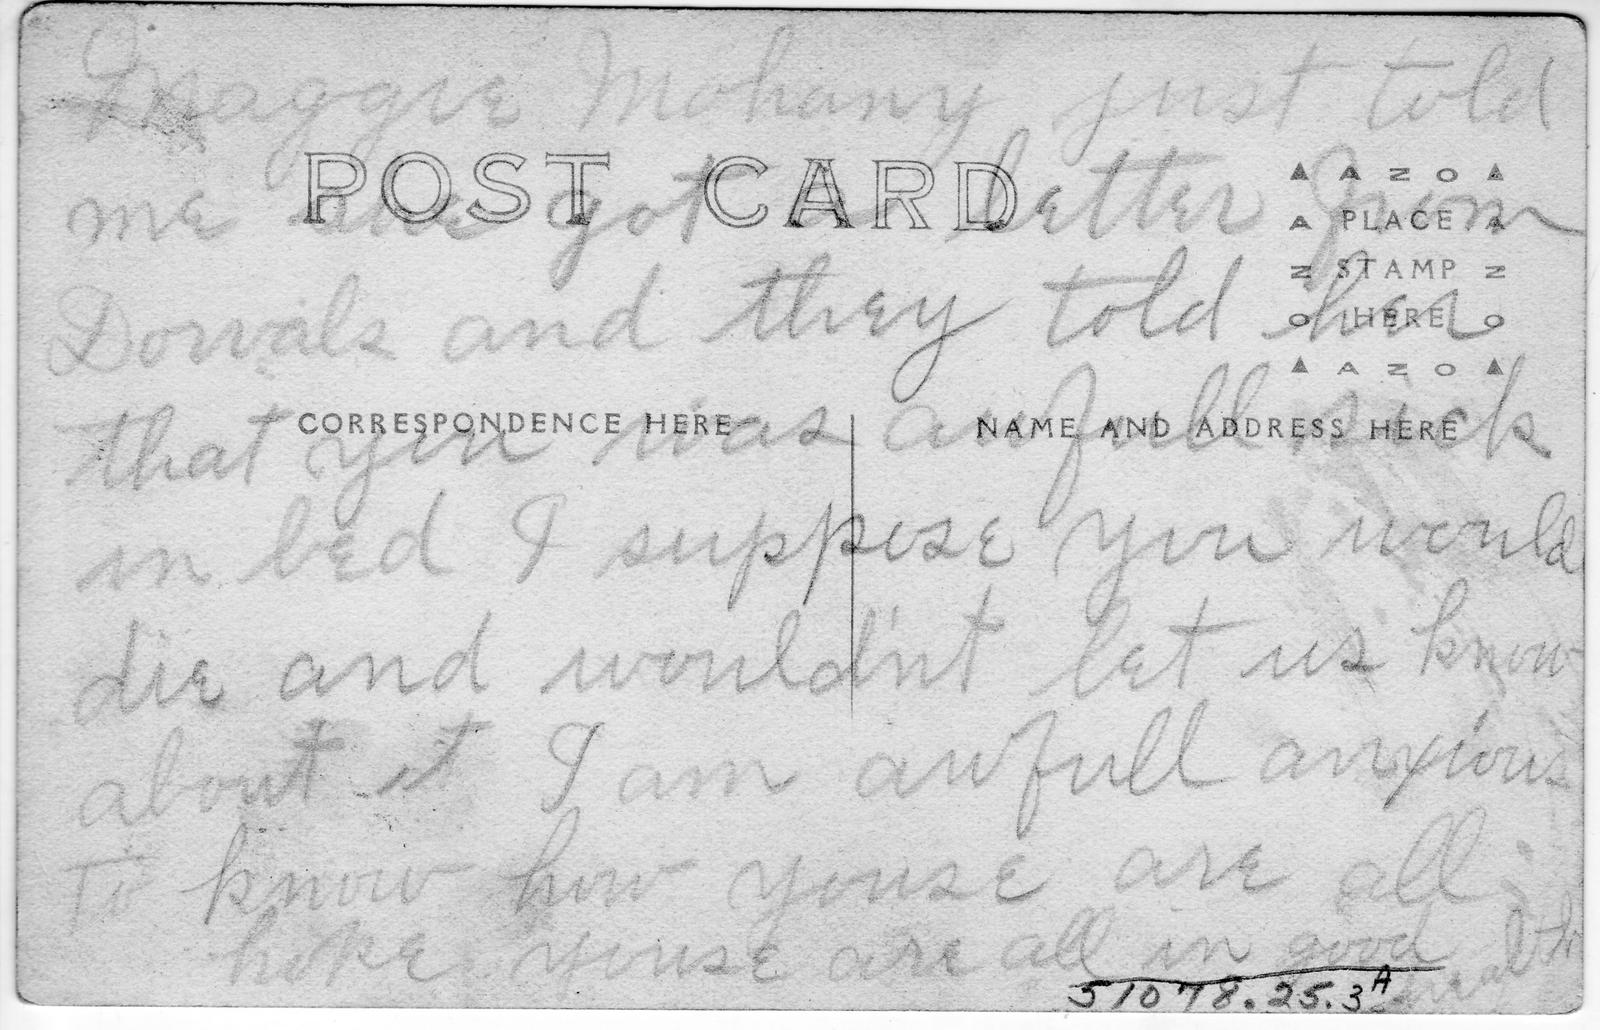 Maggie Mohany just told
POST CARD
me she got a letter from
Dorvals and they told her
that you was awfull sick
in bed I suppose you would
die and wouldn't let us know
about it I am awfull anxious
To know how youse are all
hope youse are all in good
AZO
PLACE
STAMP
HERE
AZO
CORRESPONDENCE HERE
NAME AND ADDRESS HERE
51078.25.3A